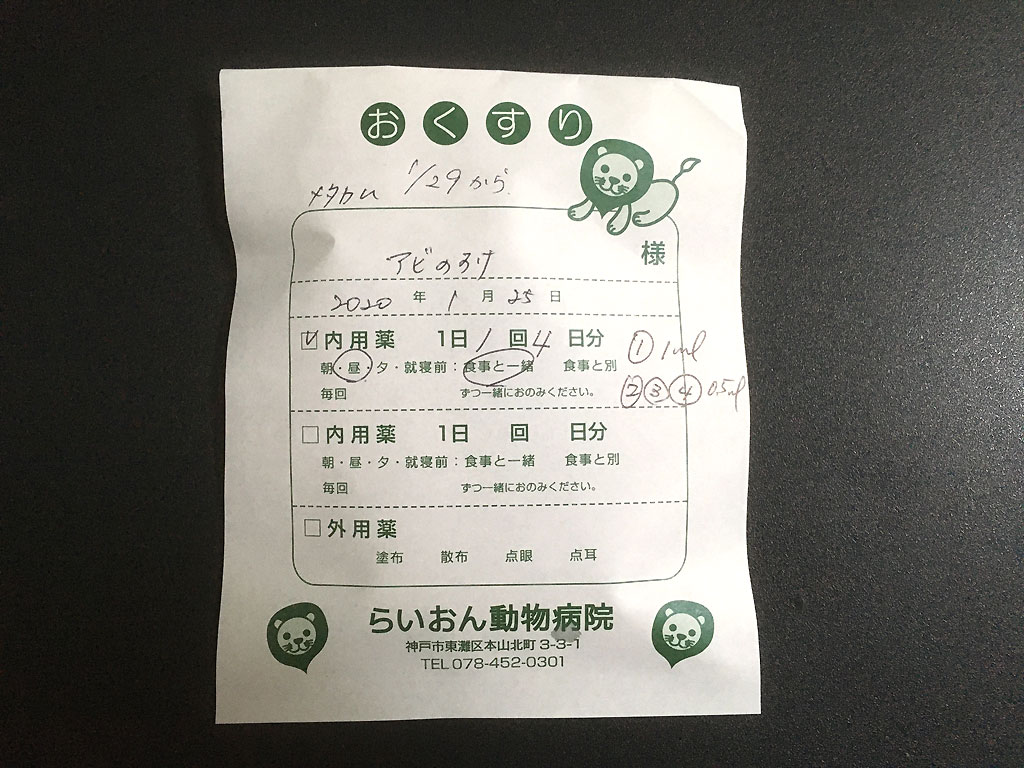 おくすり
メタカム 1/29から
様
2020年1月25日
☑内用薬 1日1回4日分 ①1ml
朝・昼・夕・就寝前:食事と一緒 食事と別
②③④0.5ml
毎回 ずつ一緒におのみください。
□内用薬 1日 回 日分
朝・昼・夕・就寝前:食事と一緒 食事と別
毎回 ずつ一緒におのみください。
□外用薬
塗布 散布 点眼 点耳
らいおん動物病院
神戸市東灘区本山北町3-3-1
TEL 078-452-0301